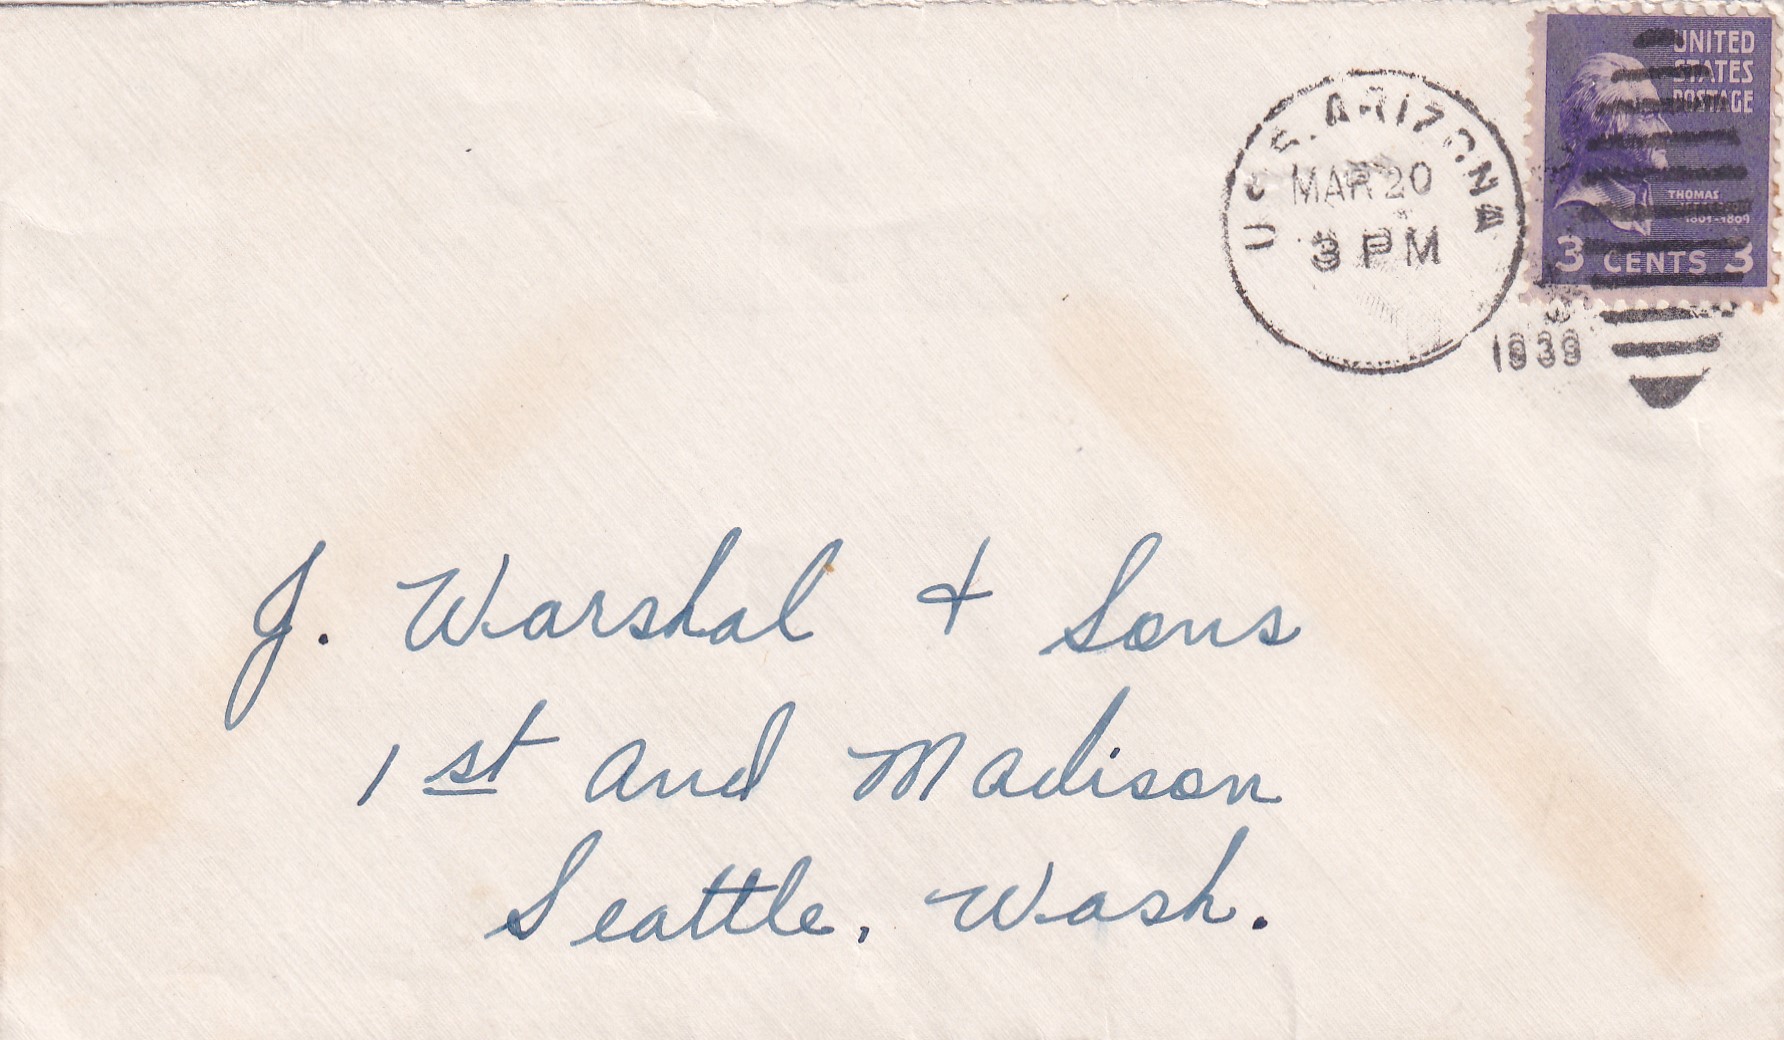 U.S.S. ARIZONA
MAR 20
3 PM
UNITED
STATES
POSTAGE
THOMAS
1801-1809
3 CENTS 3
J. Warshal & Sons
1st and Madison
Seattle, Wash.